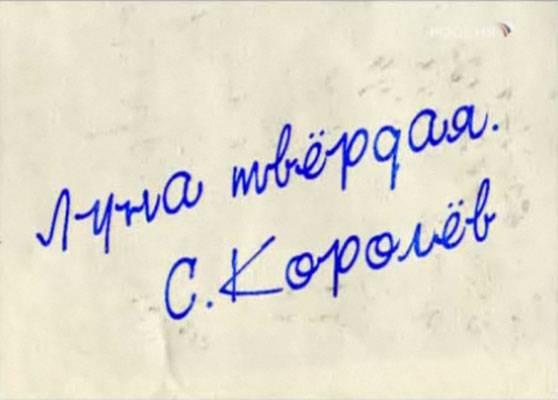 РОССИЯ
Луна твёрдая.
С. Королёв